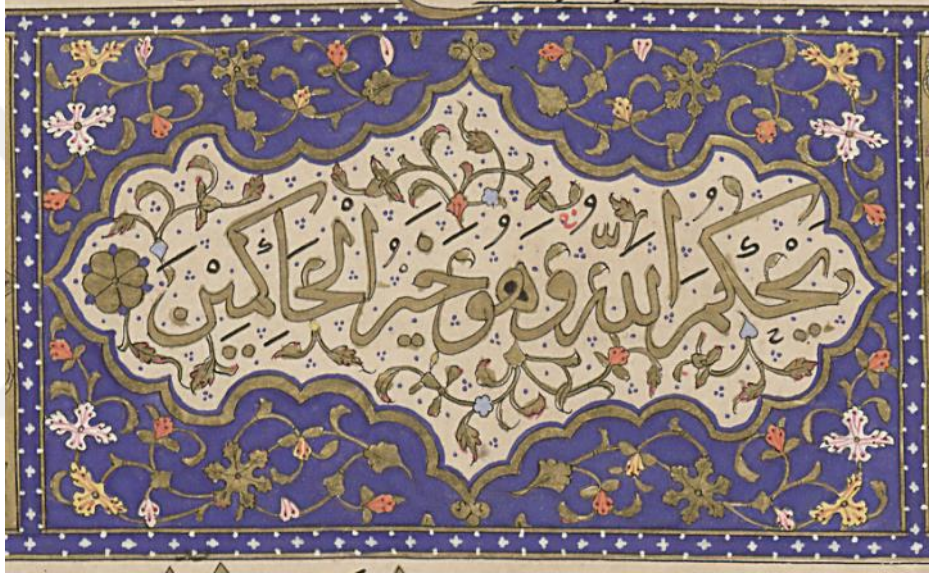 يَحْكُمَ اللّٰهُ وَهُوَ خَيْرُ الْحَاكِمِينَ